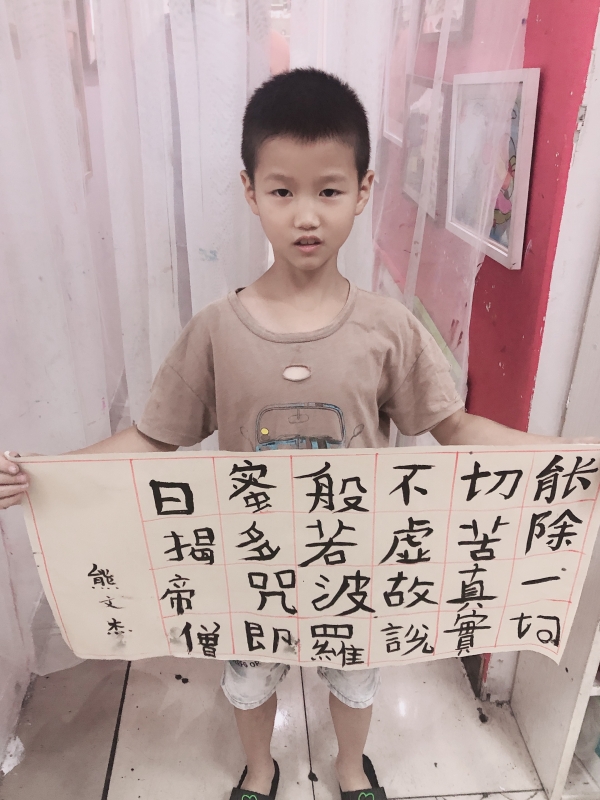 能除一切
切苦真實
不虛故說
般若波羅
蜜多咒即
曰揭帝僧
熊文杰